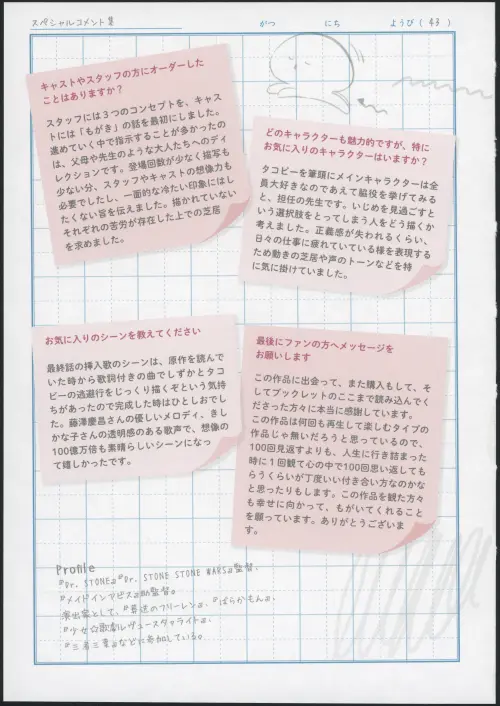 スペシャルコメント集
がつ　にち　ようび（43）
キャストやスタッフの方にオーダーした
ことはありますか？
スタッフには３つのコンセプトを、キャス
トには「もがき」の話を最初にしました。
進めていく中で指示することが多かったの
は、父母や先生のような大人たちへのディ
レクションです。登場回数が少なく描写も
少ない分、スタッフやキャストの想像力も
必要でしたし、一面的な冷たい印象にはし
たくない旨を伝えました。描かれていない
それぞれの苦労が存在した上での芝居
を求めました。
どのキャラクターも魅力的ですが、特に
お気に入りのキャラクターはいますか？
タコピーを筆頭にメインキャラクターは全
員大好きなのであえて脇役を挙げてみる
と、担任の先生です。いじめを見過ごすと
いう選択肢をとってしまう人をどう描くか
考えました。正義感が失われるくらい、
日々の仕事に疲れていている様を表現する
ため動きの芝居や声のトーンなどを特
に気に掛けていました。
お気に入りのシーンを教えてください
最終話の挿入歌のシーンは、原作を読んで
いた時から歌詞付きの曲でしずかとタコ
ピーの逃避行をじっくり描くぞという気持
ちがあったので完成した時はひとしおでし
た。藤澤慶昌さんの優しいメロディ、きし
かな子さんの透明感のある歌声で、想像の
100億万倍も素晴らしいシーンになっ
て嬉しかったです。
最後にファンの方へメッセージを
お願いします
この作品に出会って、また購入もして、そ
してブックレットのここまで読み込んでく
ださった方々に本当に感謝しています。
この作品は何回も再生して楽しむタイプの
作品じゃ無いだろうと思っているので、
100回見返すよりも、人生に行き詰まった
時に１回観て心の中で100回思い返しても
らうくらいが丁度いい付き合い方なのかな
と思ったりもします。この作品を観た方々
も幸せに向かって、もがいてくれること
を願っています。ありがとうございま
す。
Profile
『Dr. STONE』『Dr. STONE STONE WARS』監督、
『メイドインアビス』助監督。
演出家として、『葬送のフリーレン』、『ばらかもん』、
『少女☆歌劇レヴュースタァライト』、
『三者三葉』などに参加している。